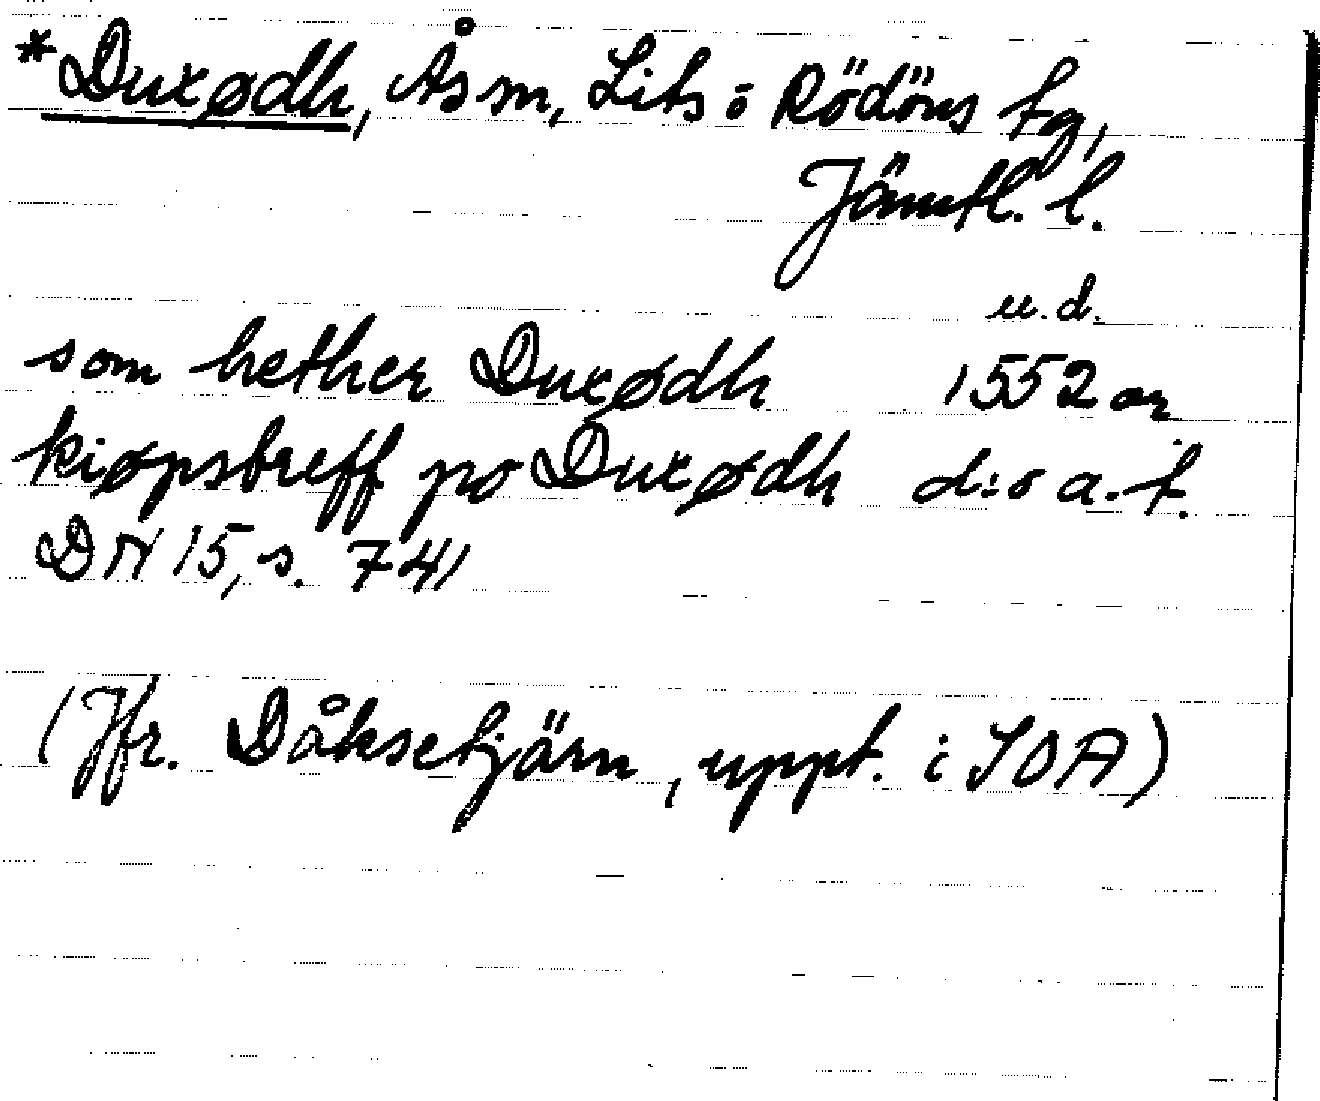 *Duxødh, Ås sn, Lits o Rödöns tg,
Jämtl. l.
u.d.
som hether Duxødh 1552 or
kiøpsbreff po Duxødh d:o a.f.
DN 15, s. 741
(Jfr. Dåksetjärn, uppt. i SOA)